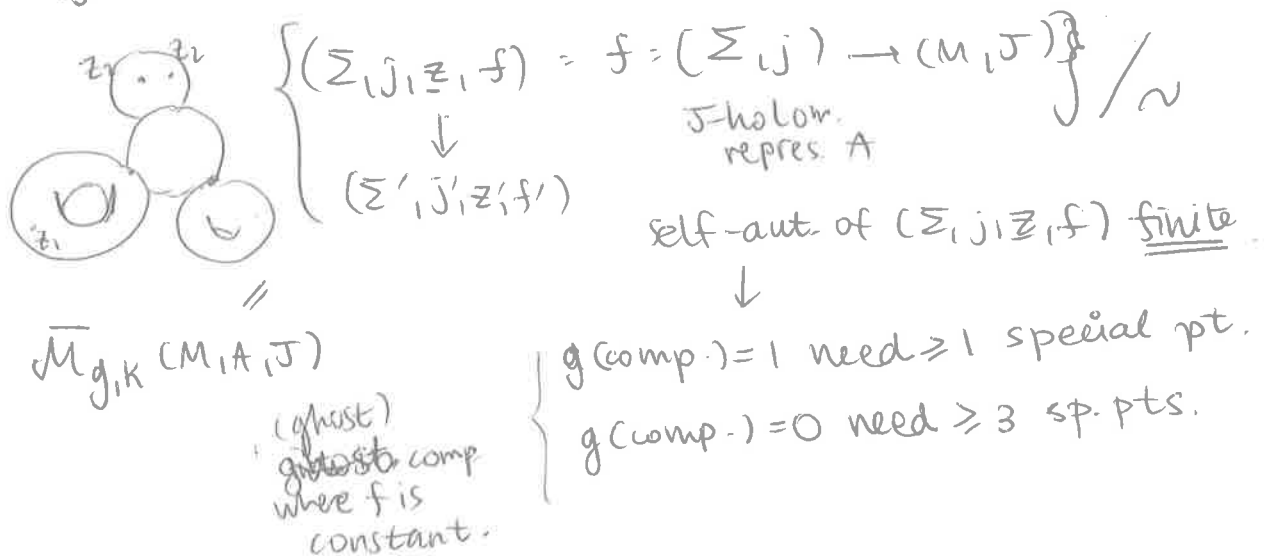 {(Σ, j, z, f) : f : (Σ, j) → (M, J)} / ~
J-holom.
repres. A
↓
(Σ', j', z', f')
z₂
z₁
self-aut. of (Σ, j, z, f) finite
↓
//
M̄_{g,K} (M, A, J)
g(comp.)=1 need ≥ 1 special pt.
g(comp.)=0 need ≥ 3 sp. pts.
(ghost)
comp
where f is
constant.